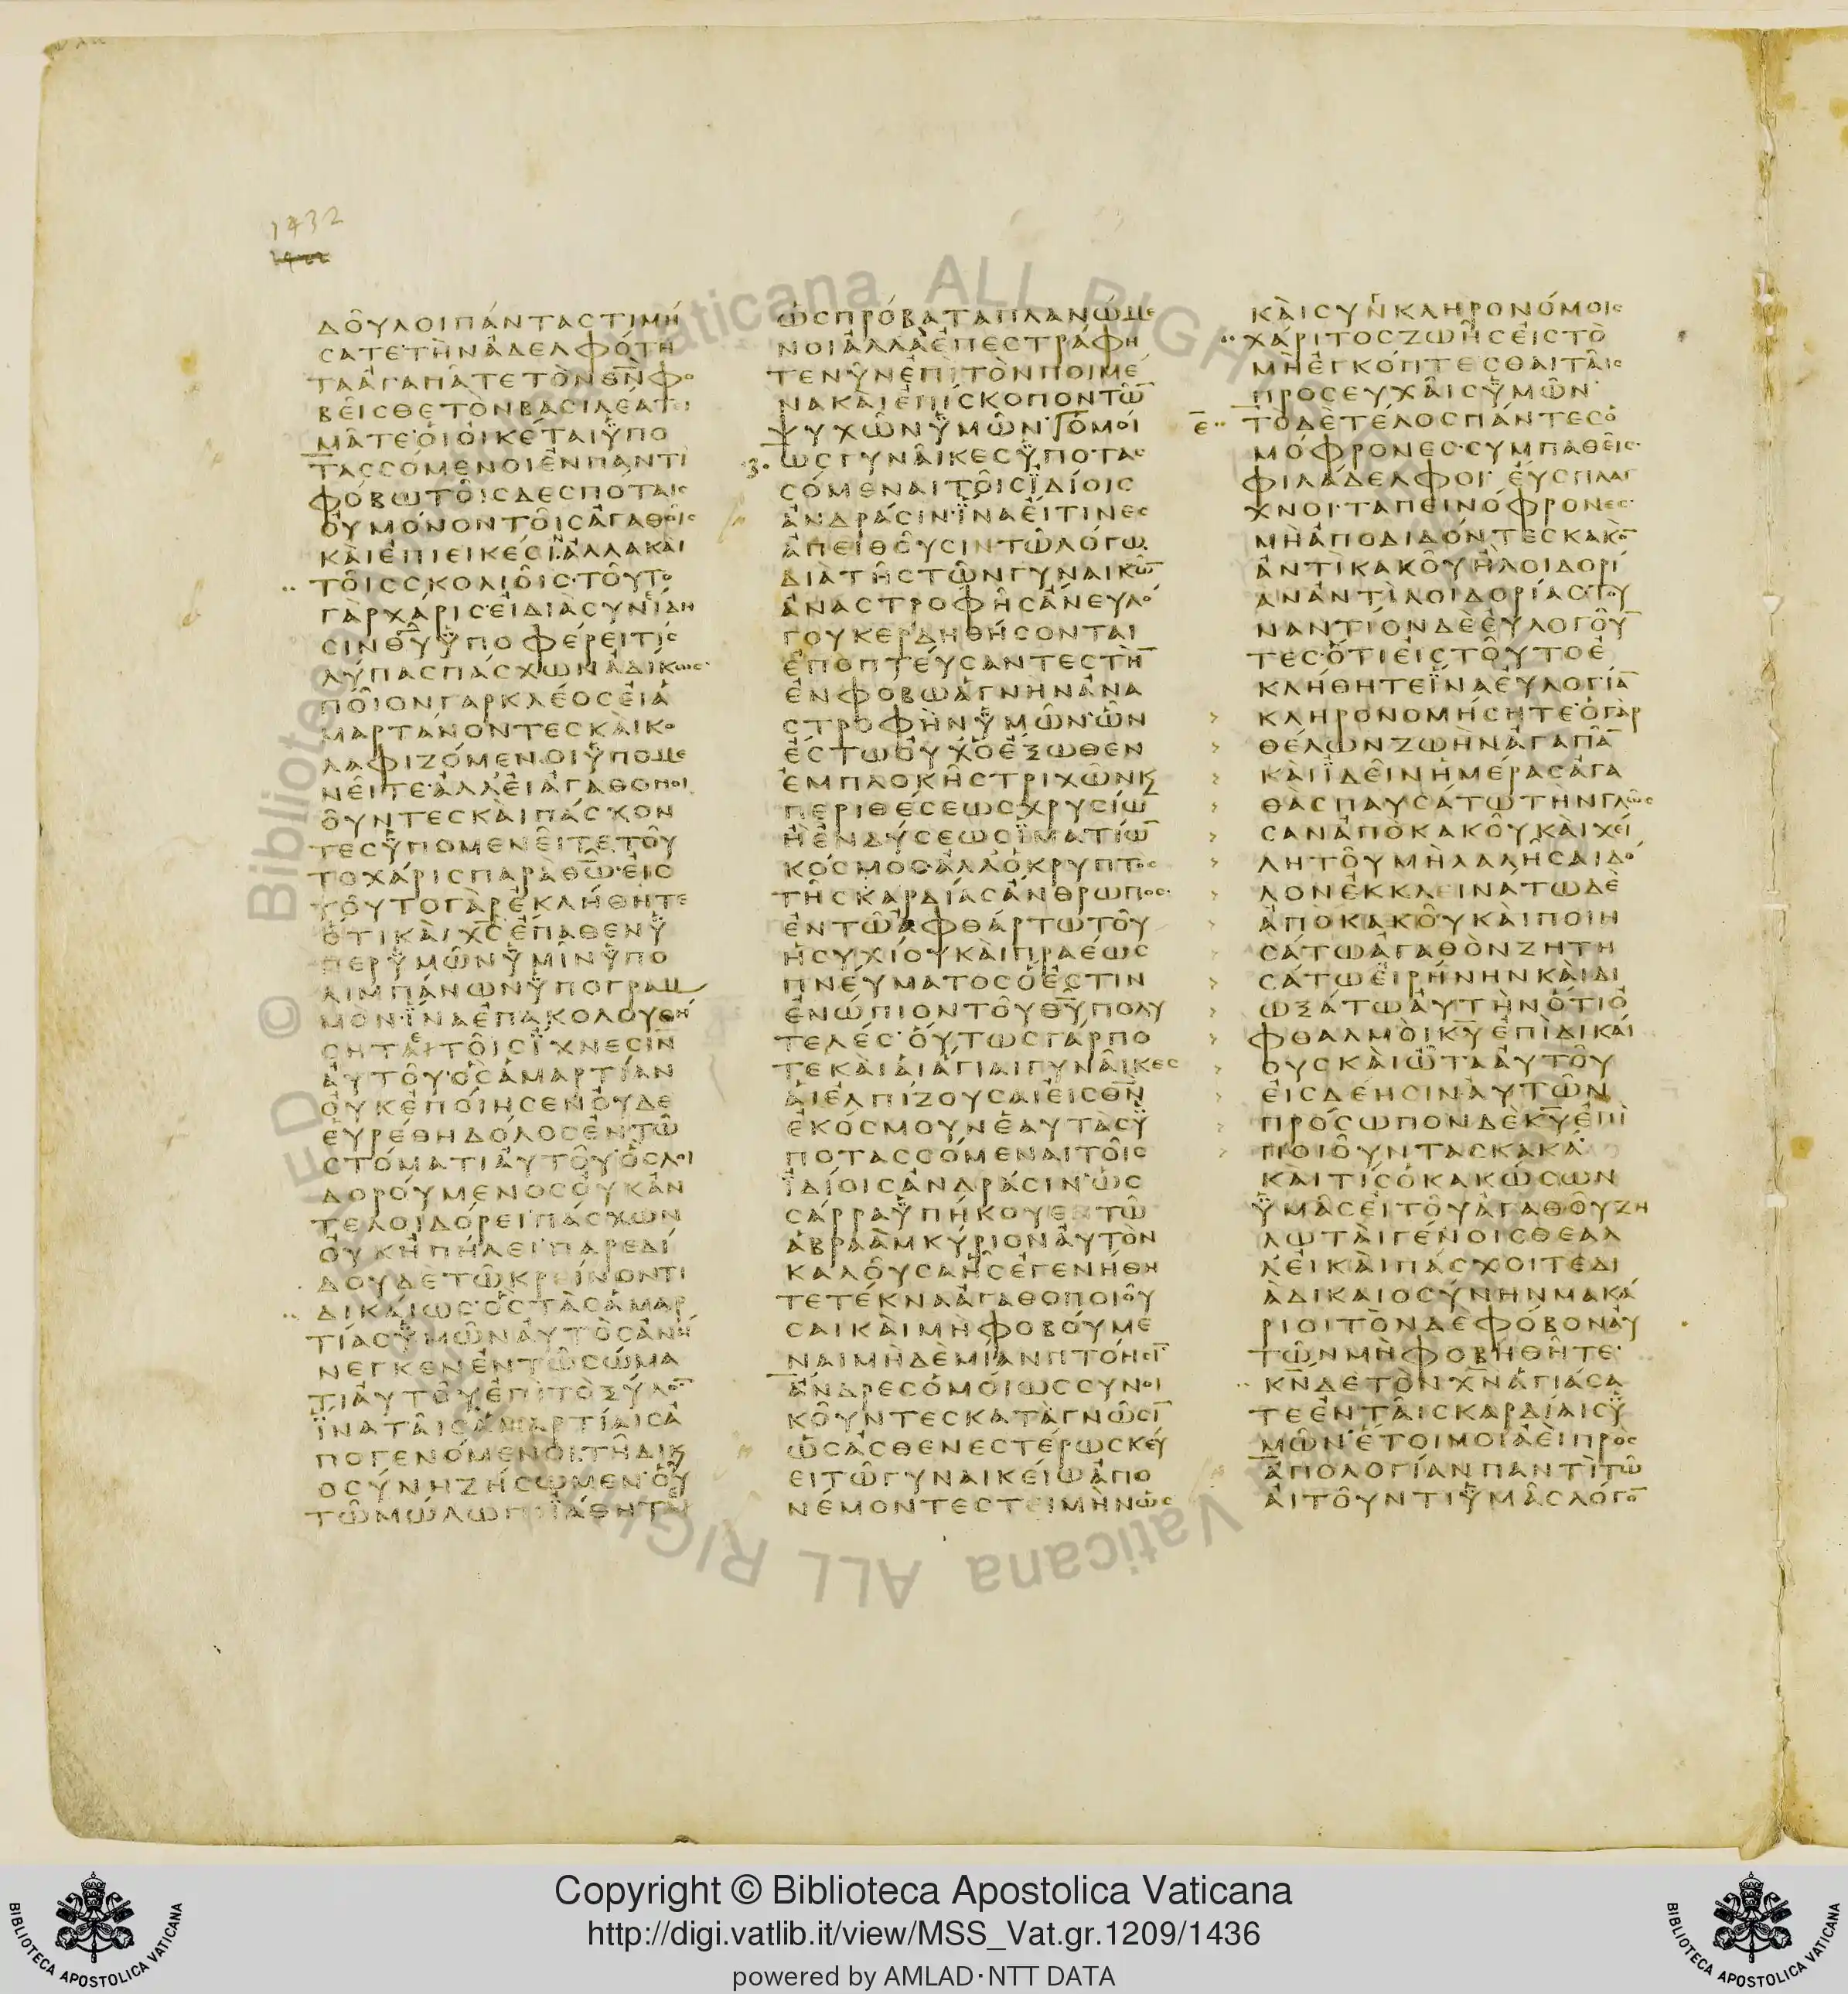 1432
ΔΟΥΛΟΙΠΑΝΤΑΣΤΙΜΗ
ΣΑΤΕΤΗΝΑΔΕΛΦΟΤΗ
ΤΑΑΓΑΠΑΤΕΤΟΝΘΝΦΟ
ΒΕΙΣΘΕΤΟΝΒΑΣΙΛΕΑΤΙ
ΜΑΤΕΟΙΟΙΚΕΤΑΙΥΠΟ
ΤΑΣΣΟΜΕΝΟΙΕΝΠΑΝΤΙ
ΦΟΒΩΤΟΙΣΔΕΣΠΟΤΑΙΣ
ΟΥΜΟΝΟΝΤΟΙΣΑΓΑΘΟΙΣ
ΚΑΙΕΠΙΕΙΚΕΣΙΝΑΛΛΑΚΑΙ
ΤΟΙΣΣΚΟΛΙΟΙΣΤΟΥΤΟ
ΓΑΡΧΑΡΙΣΕΙΔΙΑΣΥΝΕΙΔΗ
ΣΙΝΘΥΥΠΟΦΕΡΕΙΤΙΣ
ΛΥΠΑΣΠΑΣΧΩΝΑΔΙΚΩΣ
ΠΟΙΟΝΓΑΡΚΛΕΟΣΕΙΑ
ΜΑΡΤΑΝΟΝΤΕΣΚΑΙΚΟ
ΛΑΦΙΖΟΜΕΝΟΙΥΠΟΜΕ
ΝΕΙΤΕΑΛΛΕΙΑΓΑΘΟΠΟΙ
ΟΥΝΤΕΣΚΑΙΠΑΣΧΟΝ
ΤΕΣΥΠΟΜΕΝΕΙΤΕΤΟΥ
ΤΟΧΑΡΙΣΠΑΡΑΘΩΕΙΣ
ΤΟΥΤΟΓΑΡΕΚΛΗΘΗΤΕ
ΟΤΙΚΑΙΧΣΕΠΑΘΕΝΥ
ΠΕΡΥΜΩΝΥΜΙΝΥΠΟ
ΛΙΜΠΑΝΩΝΥΠΟΓΡΑΜ
ΜΟΝΙΝΑΕΠΑΚΟΛΟΥΘΗ
ΣΗΤΑΙΤΟΙΣΙΧΝΕΣΙΝ
ΑΥΤΟΥΟΣΑΜΑΡΤΙΑΝ
ΟΥΚΕΠΟΙΗΣΕΝΟΥΔΕ
ΕΥΡΕΘΗΔΟΛΟΣΕΝΤΩ
ΣΤΟΜΑΤΙΑΥΤΟΥΟΣΛΟΙ
ΔΟΡΟΥΜΕΝΟΣΟΥΚΑΝ
ΤΕΛΟΙΔΟΡΕΙΠΑΣΧΩΝ
ΟΥΚΗΠΗΛΕΙΠΑΡΕΔΙ
ΔΟΥΔΕΤΩΚΡΕΙΝΟΝΤΙ
ΔΙΚΑΙΩΣΟΣΤΑΣΑΜΑΡ
ΤΙΑΣΥΜΩΝΑΥΤΟΣΑΝΗ
ΝΕΓΚΕΝΕΝΤΩΣΩΜΑ
ΤΙΑΥΤΟΥΕΠΙΤΟΞΥΛΟ
ΙΝΑΤΑΙΣΑΜΑΡΤΙΑΙΣΑ
ΠΟΓΕΝΟΜΕΝΟΙΤΗΔΙΚΑΙ
ΟΣΥΝΗΖΗΣΩΜΕΝΟΥ
ΤΩΜΩΛΩΠΙΙΑΘΗΤΕ
ΩΣΠΡΟΒΑΤΑΠΛΑΝΩΜΕ
ΝΟΙΑΛΛΑΕΠΕΣΤΡΑΦΗ
ΤΕΝΥΝΕΠΙΤΟΝΠΟΙΜΕ
ΝΑΚΑΙΕΠΙΣΚΟΠΟΝΤΩ
ΨΥΧΩΝΥΜΩΝΟΜΟΙ
ΩΣΓΥΝΑΙΚΕΣΥΠΟΤΑΣ
ΣΟΜΕΝΑΙΤΟΙΣΙΔΙΟΙΣ
ΑΝΔΡΑΣΙΝΙΝΑΕΙΤΙΝΕΣ
ΑΠΕΙΘΟΥΣΙΝΤΩΛΟΓΩ
ΔΙΑΤΗΣΤΩΝΓΥΝΑΙΚΩ
ΑΝΑΣΤΡΟΦΗΣΑΝΕΥΛΟ
ΓΟΥΚΕΡΔΗΘΗΣΟΝΤΑΙ
ΕΠΟΠΤΕΥΣΑΝΤΕΣΤΗ
ΕΝΦΟΒΩΑΓΝΗΝΑΝΑ
ΣΤΡΟΦΗΝΥΜΩΝΩΝ
ΕΣΤΩΟΥΧΟΕΞΩΘΕΝ
ΕΜΠΛΟΚΗΣΤΡΙΧΩΝΚ
ΠΕΡΙΘΕΣΕΩΣΧΡΥΣΙΩ
ΗΕΝΔΥΣΕΩΣΙΜΑΤΙΩ
ΚΟΣΜΟΣΑΛΛΟΚΡΥΠΤΟΣ
ΤΗΣΚΑΡΔΙΑΣΑΝΘΡΩΠΟΣ
ΕΝΤΩΑΦΘΑΡΤΩΤΟΥ
ΗΣΥΧΙΟΥΚΑΙΠΡΑΕΩΣ
ΠΝΕΥΜΑΤΟΣΟΕΣΤΙΝ
ΕΝΩΠΙΟΝΤΟΥΘΥΠΟΛΥ
ΤΕΛΕΣΟΥΤΩΣΓΑΡΠΟ
ΤΕΚΑΙΑΙΑΓΙΑΙΓΥΝΑΙΚΕΣ
ΑΙΕΛΠΙΖΟΥΣΑΙΕΙΣΘΝ
ΕΚΟΣΜΟΥΝΕΑΥΤΑΣΥ
ΠΟΤΑΣΣΟΜΕΝΑΙΤΟΙΣ
ΙΔΙΟΙΣΑΝΔΡΑΣΙΝΩΣ
ΣΑΡΡΑΥΠΗΚΟΥΕΝΤΩ
ΑΒΡΑΑΜΚΥΡΙΟΝΑΥΤΟΝ
ΚΑΛΟΥΣΑΗΣΕΓΕΝΗΘΗ
ΤΕΤΕΚΝΑΑΓΑΘΟΠΟΙΟΥ
ΣΑΙΚΑΙΜΗΦΟΒΟΥΜΕ
ΝΑΙΜΗΔΕΜΙΑΝΠΤΟΗΣΙ
ΑΝΔΡΕΣΟΜΟΙΩΣΣΥΝΟΙ
ΚΟΥΝΤΕΣΚΑΤΑΓΝΩΣΙ
ΩΣΑΣΘΕΝΕΣΤΕΡΩΣΚΕΥ
ΕΙΤΩΓΥΝΑΙΚΕΙΩΑΠΟ
ΝΕΜΟΝΤΕΣΤΕΙΜΗΝΩΣ
ΚΑΙΣΥΝΚΛΗΡΟΝΟΜΟΙΣ
ΧΑΡΙΤΟΣΖΩΗΣΕΙΣΤΟ
ΜΗΕΓΚΟΠΤΕΣΘΑΙΤΑΙΣ
ΠΡΟΣΕΥΧΑΙΣΥΜΩΝ
Ε ΤΟΔΕΤΕΛΟΣΠΑΝΤΕΣΟ
ΜΟΦΡΟΝΕΣΣΥΜΠΑΘΕΙΣ
ΦΙΛΑΔΕΛΦΟΙΕΥΣΠΛΑΓ
ΧΝΟΙΤΑΠΕΙΝΟΦΡΟΝΕΣ
ΜΗΑΠΟΔΙΔΟΝΤΕΣΚΑΚΟ
ΑΝΤΙΚΑΚΟΥΗΛΟΙΔΟΡΙ
ΑΝΑΝΤΙΛΟΙΔΟΡΙΑΣΤΟΥ
ΝΑΝΤΙΟΝΔΕΕΥΛΟΓΟΥ
ΤΕΣΟΤΙΕΙΣΤΟΥΤΟΕ
ΚΛΗΘΗΤΕΙΝΑΕΥΛΟΓΙΑ
ΚΛΗΡΟΝΟΜΗΣΗΤΕΟΓΑΡ
ΘΕΛΩΝΖΩΗΝΑΓΑΠΑ
ΚΑΙΙΔΕΙΝΗΜΕΡΑΣΑΓΑ
ΘΑΣΠΑΥΣΑΤΩΤΗΝΓΛΩΣ
ΣΑΝΑΠΟΚΑΚΟΥΚΑΙΧΕΙ
ΛΗΤΟΥΜΗΛΑΛΗΣΑΙΔΟ
ΛΟΝΕΚΚΛΕΙΝΑΤΩΔΕ
ΑΠΟΚΑΚΟΥΚΑΙΠΟΙΗ
ΣΑΤΩΑΓΑΘΟΝΖΗΤΗ
ΣΑΤΩΕΙΡΗΝΗΝΚΑΙΔΙ
ΩΞΑΤΩΑΥΤΗΝΟΤΙΟ
ΦΘΑΛΜΟΙΚΥΕΠΙΔΙΚΑΙ
ΟΥΣΚΑΙΩΤΑΑΥΤΟΥ
ΕΙΣΔΕΗΣΙΝΑΥΤΩΝ
ΠΡΟΣΩΠΟΝΔΕΚΥΕΠΙ
ΠΟΙΟΥΝΤΑΣΚΑΚΑ
ΚΑΙΤΙΣΟΚΑΚΩΣΩΝ
ΥΜΑΣΕΙΤΟΥΑΓΑΘΟΥΖΗ
ΛΩΤΑΙΓΕΝΟΙΣΘΕΑΛ
ΛΕΙΚΑΙΠΑΣΧΟΙΤΕΔΙ
ΑΔΙΚΑΙΟΣΥΝΗΝΜΑΚΑ
ΡΙΟΙΤΟΝΔΕΦΟΒΟΝΑΥ
ΤΩΝΜΗΦΟΒΗΘΗΤΕ
ΚΝΔΕΤΟΝΧΝΑΓΙΑΣΑ
ΤΕΕΝΤΑΙΣΚΑΡΔΙΑΙΣΥ
ΜΩΝΕΤΟΙΜΟΙΑΕΙΠΡΟΣ
ΑΠΟΛΟΓΙΑΝΠΑΝΤΙΤΩ
ΑΙΤΟΥΝΤΙΥΜΑΣΛΟΓΟ
© Biblioteca Vaticana ALL RIGHTS RESERVED
Copyright © Biblioteca Apostolica Vaticana
http://digi.vatlib.it/view/MSS_Vat.gr.1209/1436
powered by AMLAD·NTT DATA
BIBLIOTECA APOSTOLICA VATICANA
BIBLIOTECA APOSTOLICA VATICANA